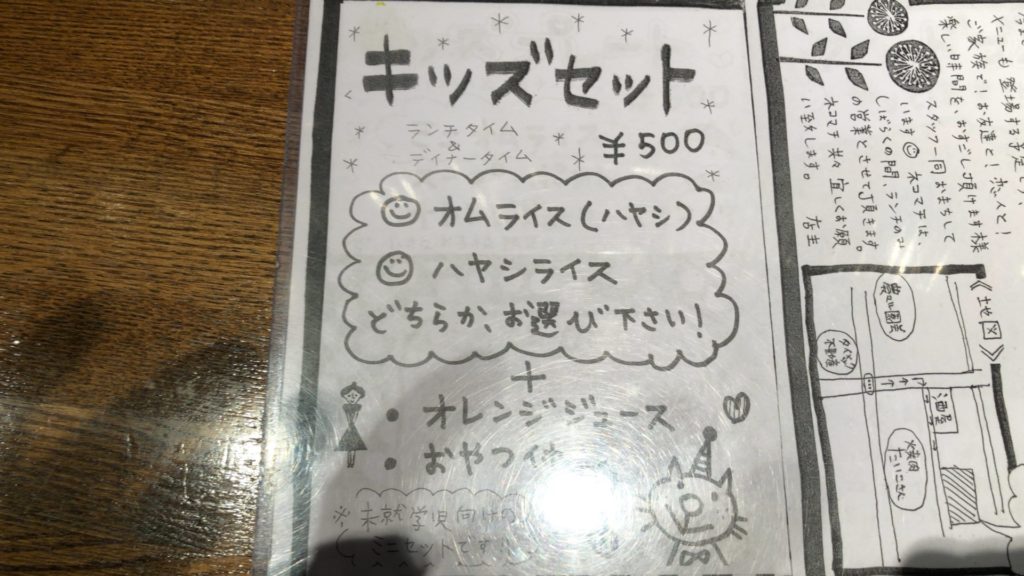 キッズセット
ランチタイム
&
ディナータイム
¥500
オムライス(ハヤシ)
ハヤシライス
どちらか、お選び下さい!
+
• オレンジジュース
• おやつ付
※未就学児向けの
ミニセットです!
ご家族で!お友達と!恋人と!
楽しい時間をお過ごし頂けます様
スタッフ一同おまちして
います
ネコマチは
しばらくの間、ランチのみ
の営業とさせて頂きます。
ネコマチ共々宜しくお願
い致します。
店主
《地図》
酒屋